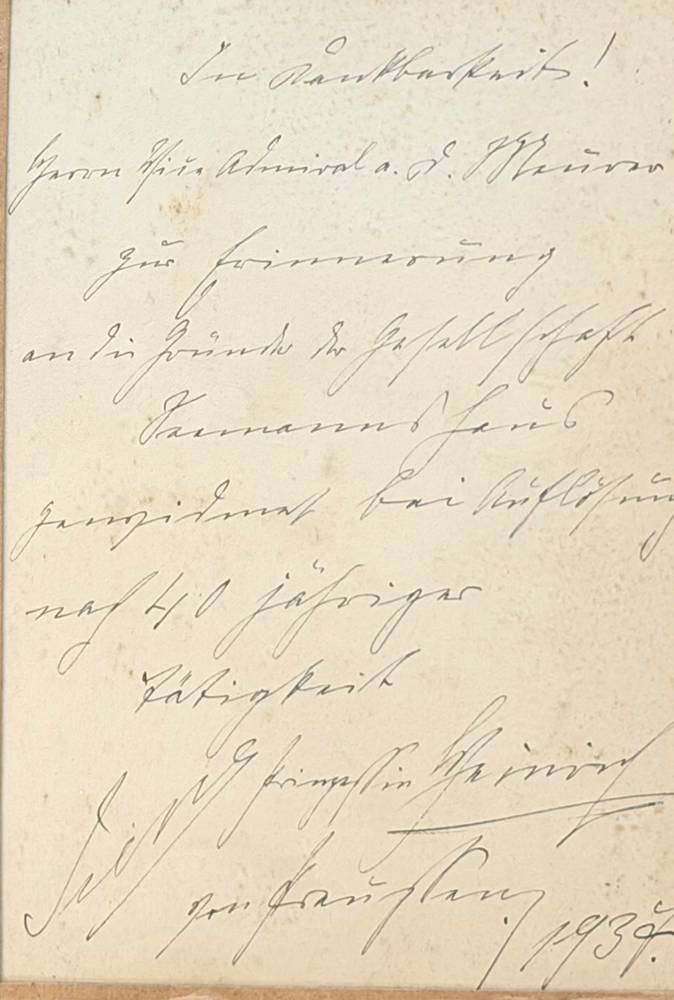 In Dankbarkeit!
Herrn Vice Admiral a. D. Meurer
zur Erinnerung
an die Gründer der Gesellschaft
Seemannshaus
gewidmet bei Auflösung
nach 40 jähriger
Tätigkeit
Prinzessin Heinrich
von Preussen
1937.